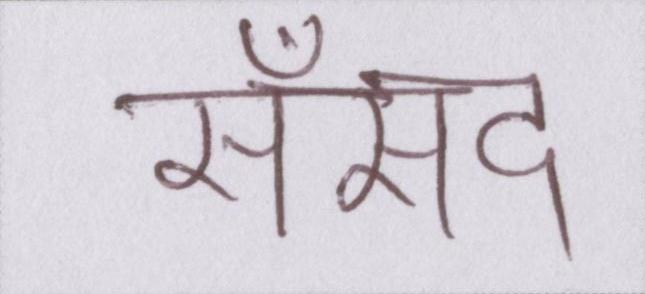 सँसद